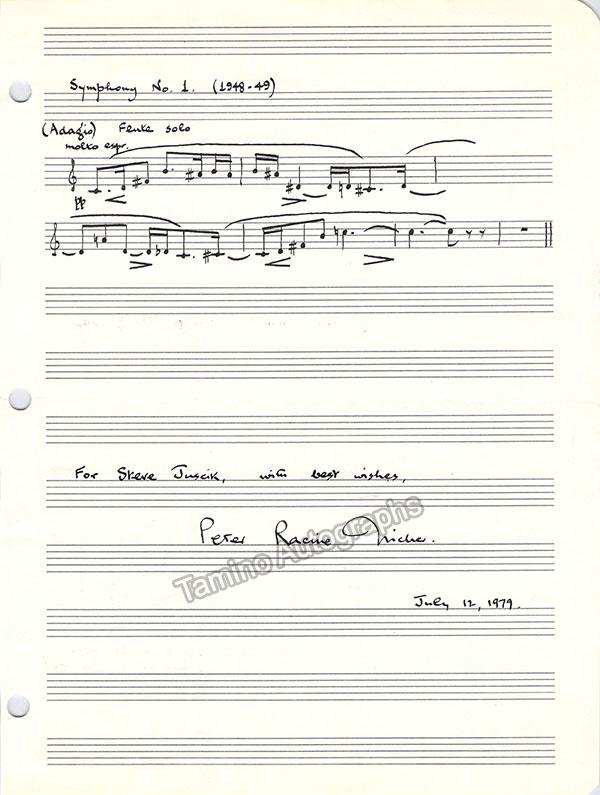 Symphony No. 1. (1948-49)
(Adagio) Flute solo
molto espr.
pp
For Steve Juscik, with best wishes,
Peter Racine Fricker.
Tamino Autographs
July 12, 1979.